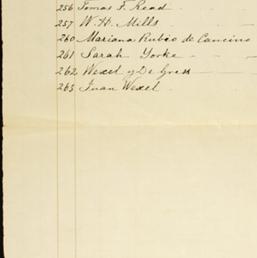 256 Tomas F. Read
257 W. H. Mills
260 Mariana Rubio de Cancino
261 Sarah Yorke
262 Wexel y De Gress
263 Juan Wexel